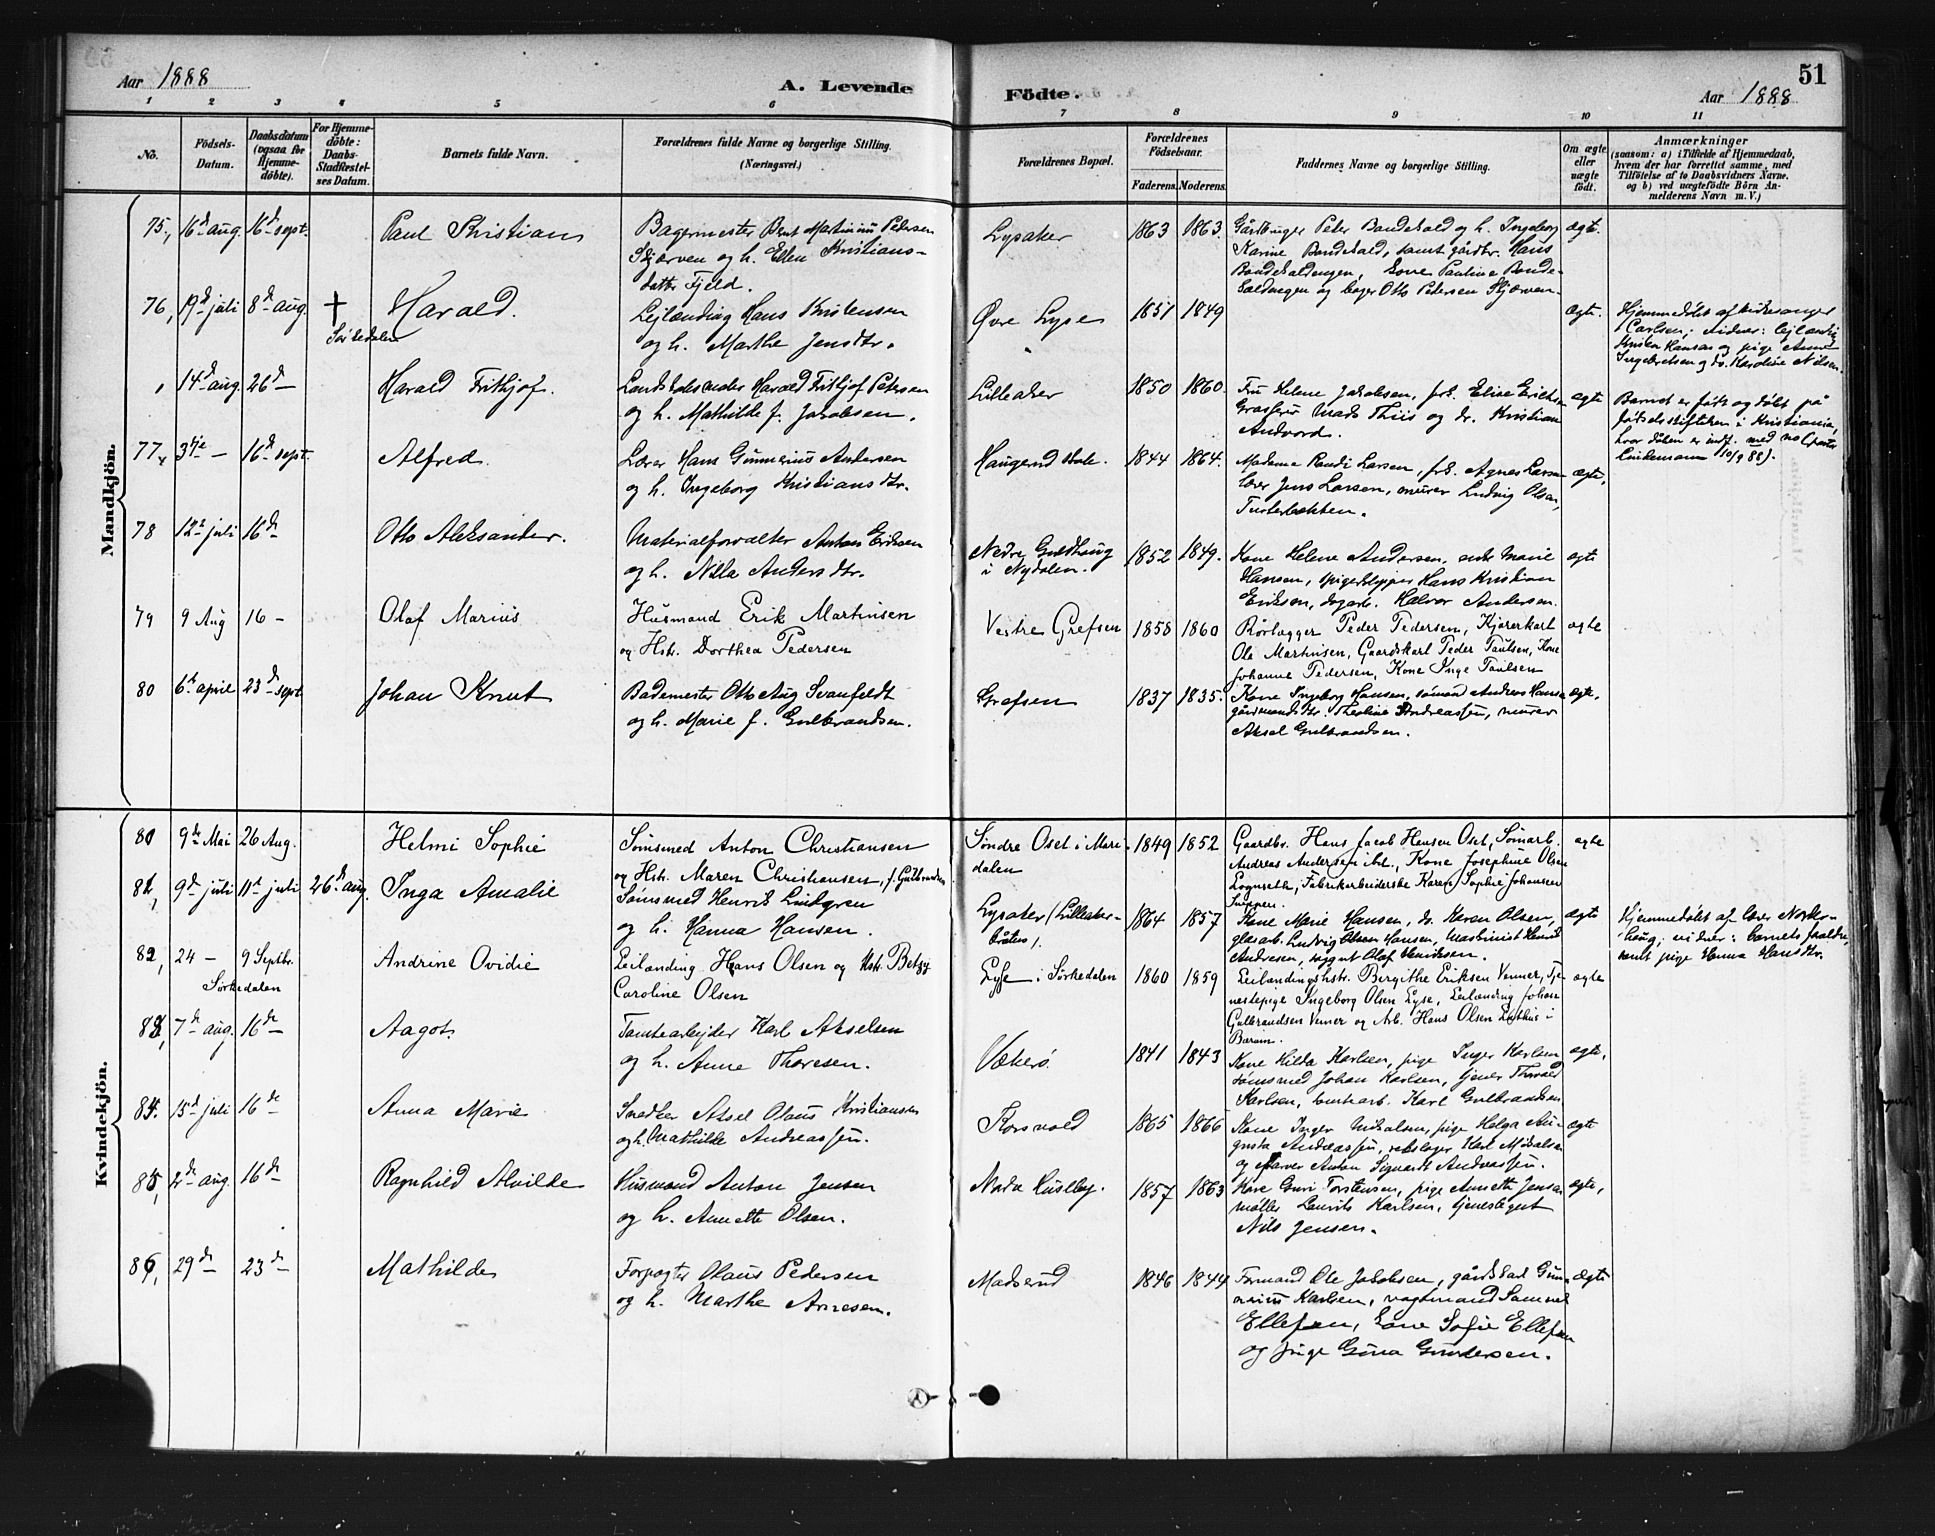 Aar 1888
A. Levende
Födte.
Aar 1888
51
1 2 3 4 5 6 7 8 9 10 11
No.
Födsels-
Datum.
Daabsdatum
(ogsaa for
Hjemme-
döbte).
For Hjemme-
döbte:
Daabs-
Stadfæstel-
ses Datum.
Barnets fulde Navn.
Forældrenes fulde Navne og borgerlige Stilling.
(Næringsvei.)
Forældrenes Bopæl.
Forældrenes
Födselsaar.
Faderens. Moderens.
Faddernes Navne og borgerlige Stilling.
Om ægte
eller
uægte
födt.
Anmærkninger
(saasom: a) i Tilfælde af Hjemmedaab,
hvem der har forrettet samme, med
Tilföielse af to Daabsvidners Navne.
og b) ved uægtefödte Börn An-
melderens Navn m. V.)
Mandkjön.
75, 16d aug. 16d sept. Paul Kristian
Bagermester Bent Martinius Petersen
Skjærven og h. Ellen Kristians-
datter Fjeld.
Lysaker 1863 1863.
Karine Bondebald, samt gårdbr. Hans
ægte.
76, 19d juli 8d aug. †
Sørkedalen
Harald.
Leilænding Hans Kristensen
og h. Marthe Jensdtr.
Øvre Lyse 1851 1849
ægte.
Hjemmedøbt af kirkesanger
Carlsen; vidner: leilænding
Kristen Hansen og pige Anne
Ingebretsen og do. Karoline Nilsen.
14d aug 26d — Harald Frithjof.
Landhandler Harald Frithjof Petersen
og h. Mathilde f. Jakobsen.
Lilleaker 1850 1860.
Fru Helene Jakobsen, frk. Elise Erichsen
Grosserer Mads Thiis og dr. Kristian
Andvord.
ægte
Barnet er født og døbt på
fødselsstiftelsen i Kristiania,
hvor dåben er indf. med no
Lindemann 10/9 88).
77, 3tje — 16d sept. Alfred.
Lærer Hans Gunnerius Andersen
og h. Ingeborg Kristiansdtr.
1844 1864.
Madame Randi Larsen, frk. Agnes Larsen
lærer Jens Larsen, murer Ludvig Olsen,
ægte,
78 12te juli 16d Otto Aleksander.
Materialforvalter Anton Eriksen
og h. Nilla Andersdtr.
Nedre Guldhaug
i Nydalen.
1852 1849.
Kone Helene Andersen, enke Marie
Hansen, spigerklipper Hans Kristian
Eriksen, dagarb. Halvor Andersen.
ægte
79 9 Aug 16 — Olaf Marius
Husmand Erik Martinsen
og Hstr. Dorthea Pedersen
Vestre Grefsen 1858 1860
Rørlægger Peder Pedersen, Kjørerkarl
Ole Martinsen, Gaardskarl Peder Paulsen, Kone
Johanne Pedersen, Kone Inge Paulsen
ægte
80 6te april 23d sept Johan Knut
Bademester Otto Aug Svanfeldt
og h. Marie f. Gulbrandsen.
Grefsen 1837 1835.
Kone Ingeborg Hansen, sømand Andreas Hansen
gårdmandsdtr. Theoline Andreassen, murer
Aksel Gulbrandsen.
ægte,
Kvindekjön.
80 9de Mai 26 Aug. Helmi Sophie
Sømsmed Anton Christiansen
og Hstr. Maren Christiansen, f. Gulbrandsen
Søndre Oset i Mari-
dalen
1849 1852
Gaardbr. Hans Jacob Hansen Oset, Sømarb.
Andreas Andersen ibd., Kone Josephine Olsen
Fabrikarbeiderske Karen Sophie Johansen
ægte
81, 9d juli 11te juli 26d aug. Inga Amalie
Sømsmed Henrik Lindgren
og h. Hanna Hansen.
Lysaker (Lilleaker-
bråten).
1864 1857
Kone Marie Hansen, do. Karen Olsen,
glasarb. Ludvig Olsen Hansen, Maskinist Henrik
Andresen, Olaf Henriksen.
ægte
Hjemmedøbt af lærer Norder-
haug; vidner: barnets forældre,
samt pige Hanna Hansdtr.
82, 24 — 9 Septbr.
Sørkedalen
Andrine Ovidie
Leilænding Hans Olsen og Hstr. Betzy
Caroline Olsen
Lyse i Sørkedalen 1860 1859
Leilændingshstr. Bergithe Eriksen Venner, Tje-
nestepige Ingeborg Olsen Lyse, Leilænding Johan
Gulbrandsen Venner og Arb. Hans Olsen i
Bærum.
ægte
83, 7de aug. 16de Aagot.
Tomtearbejder Karl Akselsen
og h. Anne Thoresen.
Vækerø 1841 1843
Kone Hilda Karlsen, pige Inger Karlsen
sømsmed Johan Karlsen, tjener Thorvald
Karlsen, Karl Gulbrandsen
ægte,
84. 15d juli 16de Anna Marie
Snedker Aksel Olaus Kristiansen
og h. Mathilde Andreassen.
Korsvold 1865 1866
Kone Inger Mikalsen, pige Helga Au-
gusta Andreassen, Karl Mikalsen
og Anton Sigvardt Andreassen.
ægte
85, 2de aug. 16de Ragnhild Alvilde
Husmand Anton Jensen
og h. Annette Olsen.
Nedre Huseby. 1857 1863
Kone Guri Torstensen, pige Annette Jensen
møller Laurits Karlsen, tjenestegut
Nils Jensen.
ægte,
86, 29de 23de Mathilde
Forpagter Olaus Pedersen
og h. Marthe Arnesen.
Madserud 1846 1844
Formand Ole Jakobsen, gårdskarl Gun-
nerius Karlsen, vagtmand Samuel
Ellefsen, kone Sofie Ellefsen
og pige Gina Gundersen.
ægte